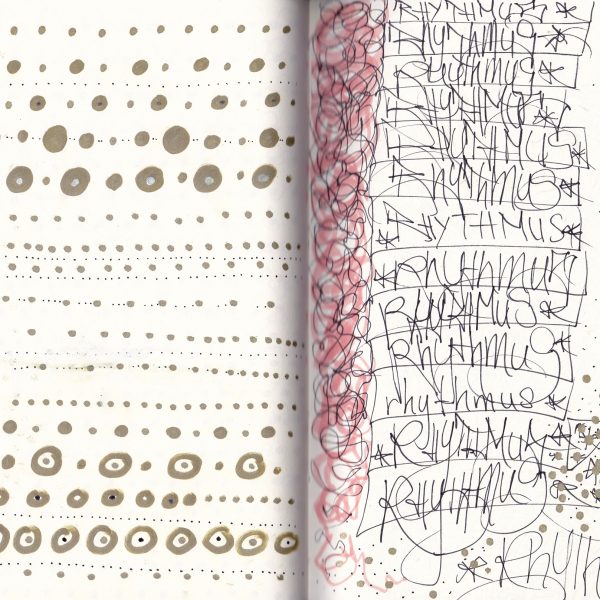 RHYTHMUS *
RHYTHMUS *
Rhythmus *
RHYTHMUS *
RHYTHMUS *
RHYTHMUS *
* RHYTHMUS *
* RHYTHMUS
RHYTHMUS *
Rhythmus *
rhythmus *
* RHYTHMUS *
RHYTHMUS
* Rhyth